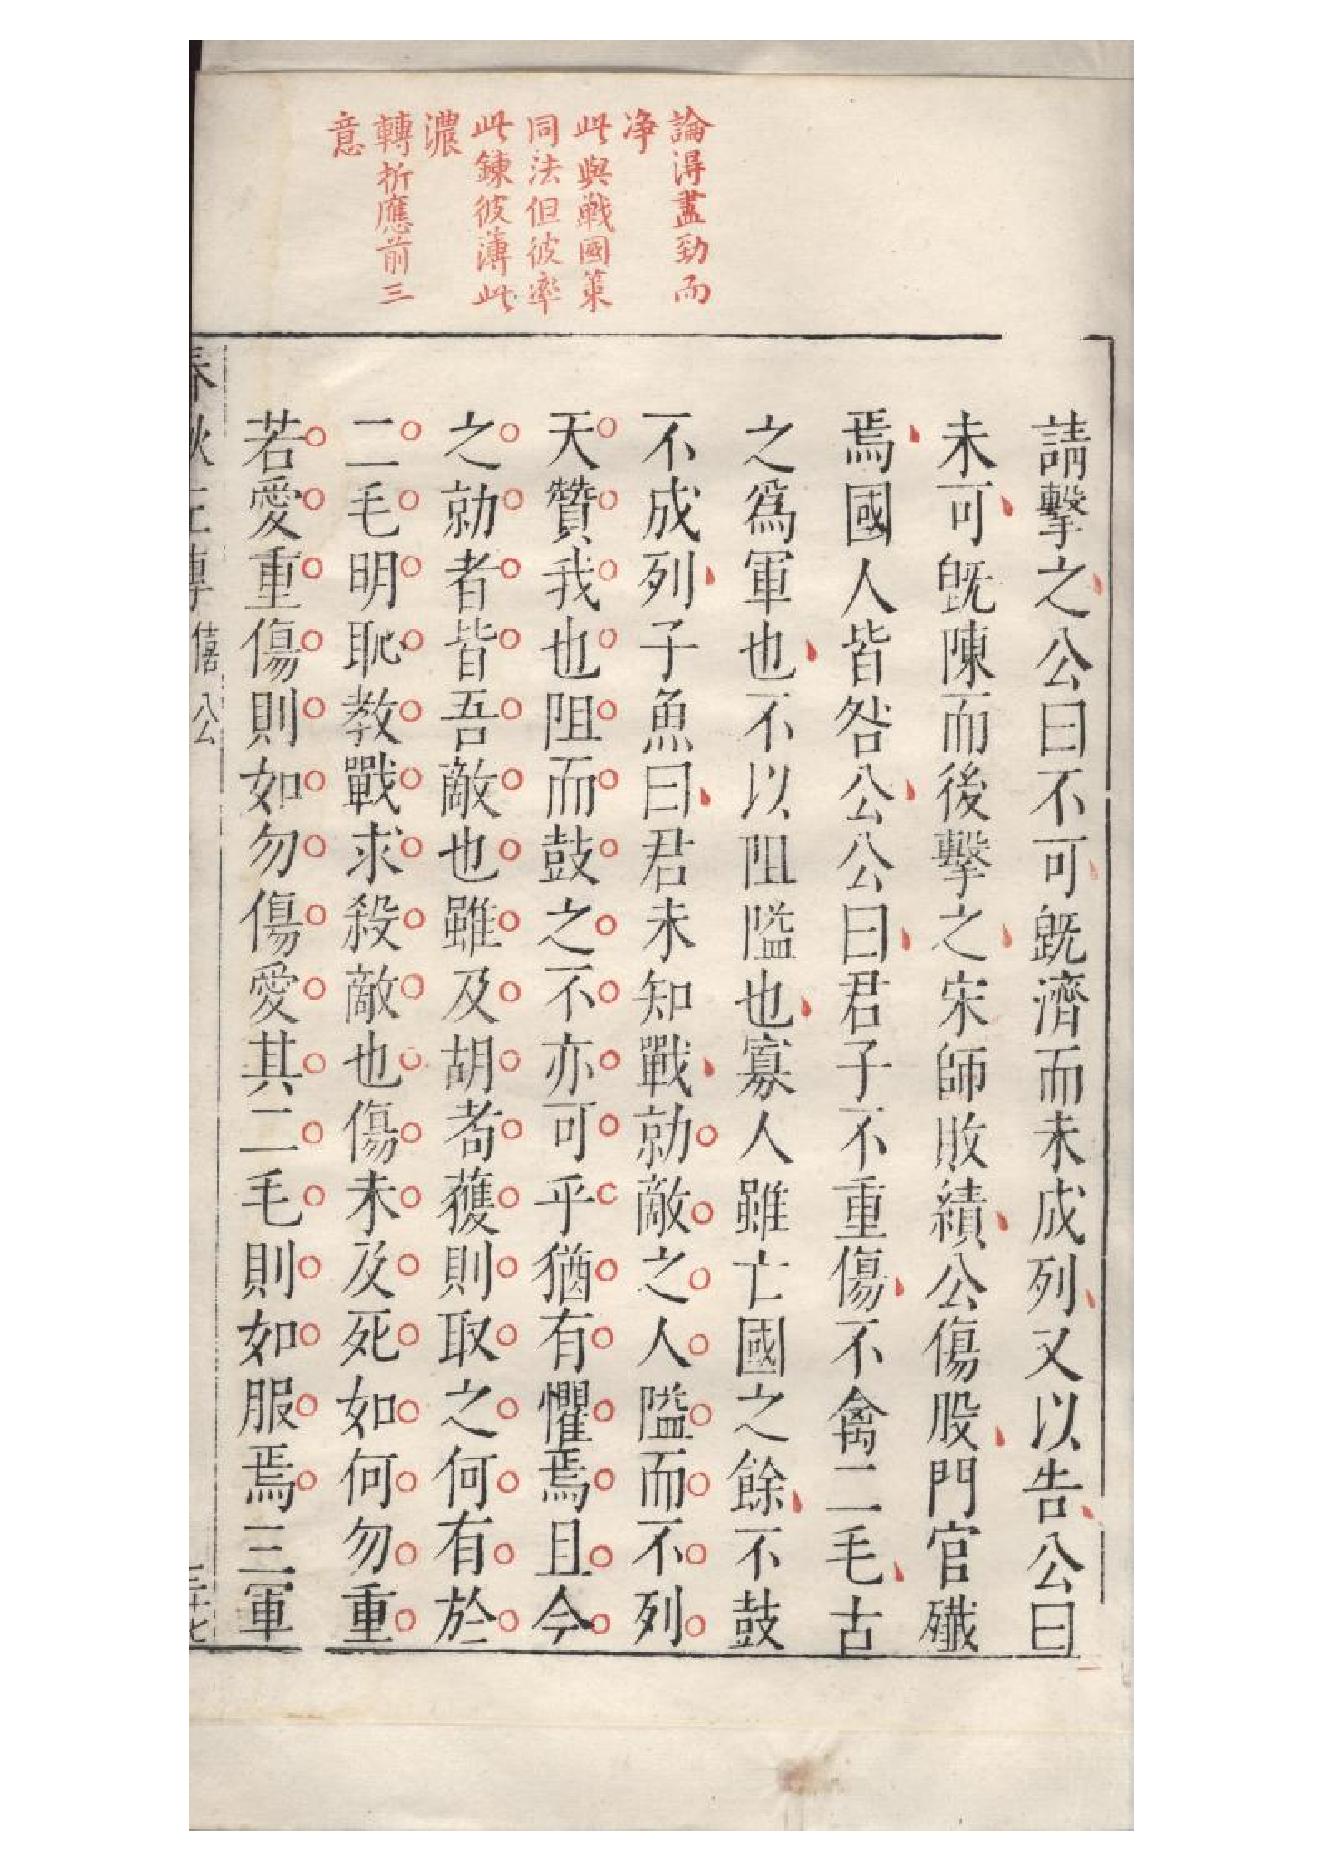 論淂盡勁而
净
此與戰國策
同法但彼率
此鍊彼薄此
濃
轉折應前三
意
請擊之公曰不可旣濟而未成列又以告公曰
未可旣陳而後擊之宋師敗績公傷股門官殲
焉國人皆咎公公曰君子不重傷不禽二毛古
之爲軍也不以阻隘也寡人雖亡國之餘不鼓
不成列子魚曰君未知戰勍敵之人隘而不列
天贊我也阻而鼓之不亦可乎猶有懼焉且今
之勍者皆吾敵也雖及胡耉獲則取之何有於
二毛明恥教戰求殺敵也傷未及死如何勿重
若愛重傷則如勿傷愛其二毛則如服焉三軍
春秋左傳 僖公